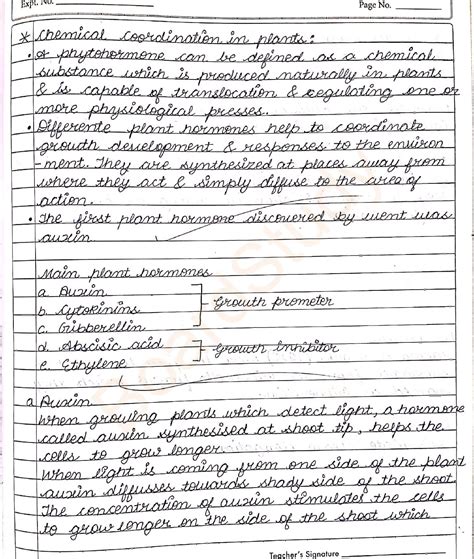 Expt. No.
Page No.
* Chemical coordination in plants:
• A phytohormone can be defined as a chemical
substance which is produced naturally in plants
& is capable of translocation & regulating one or
more physiological presses.
• Differente plant hormones help to coordinate
growth development & responses to the environ
-ment. They are synthesized at places away from
where they act & simply diffuse to the area of
action.
• The first plant hormone discovered by went was
auxin.
Main plant hormones
a. Auxin
b. Cytokinins
c. Gibberellin
Growth prometer
d. Abscisic acid
e. Ethylene
Growth Inhibitor
a) Auxin
When growing plants which detect light, a hormone
called auxin synthesised at shoot tip, helps the
cells to grow longer.
When light is coming from one side of the plant
auxin diffusses towards shady side of the shoot.
The concentration of auxin stimulates the cells
to grow longer on the side of the shoot which
Teacher's Signature